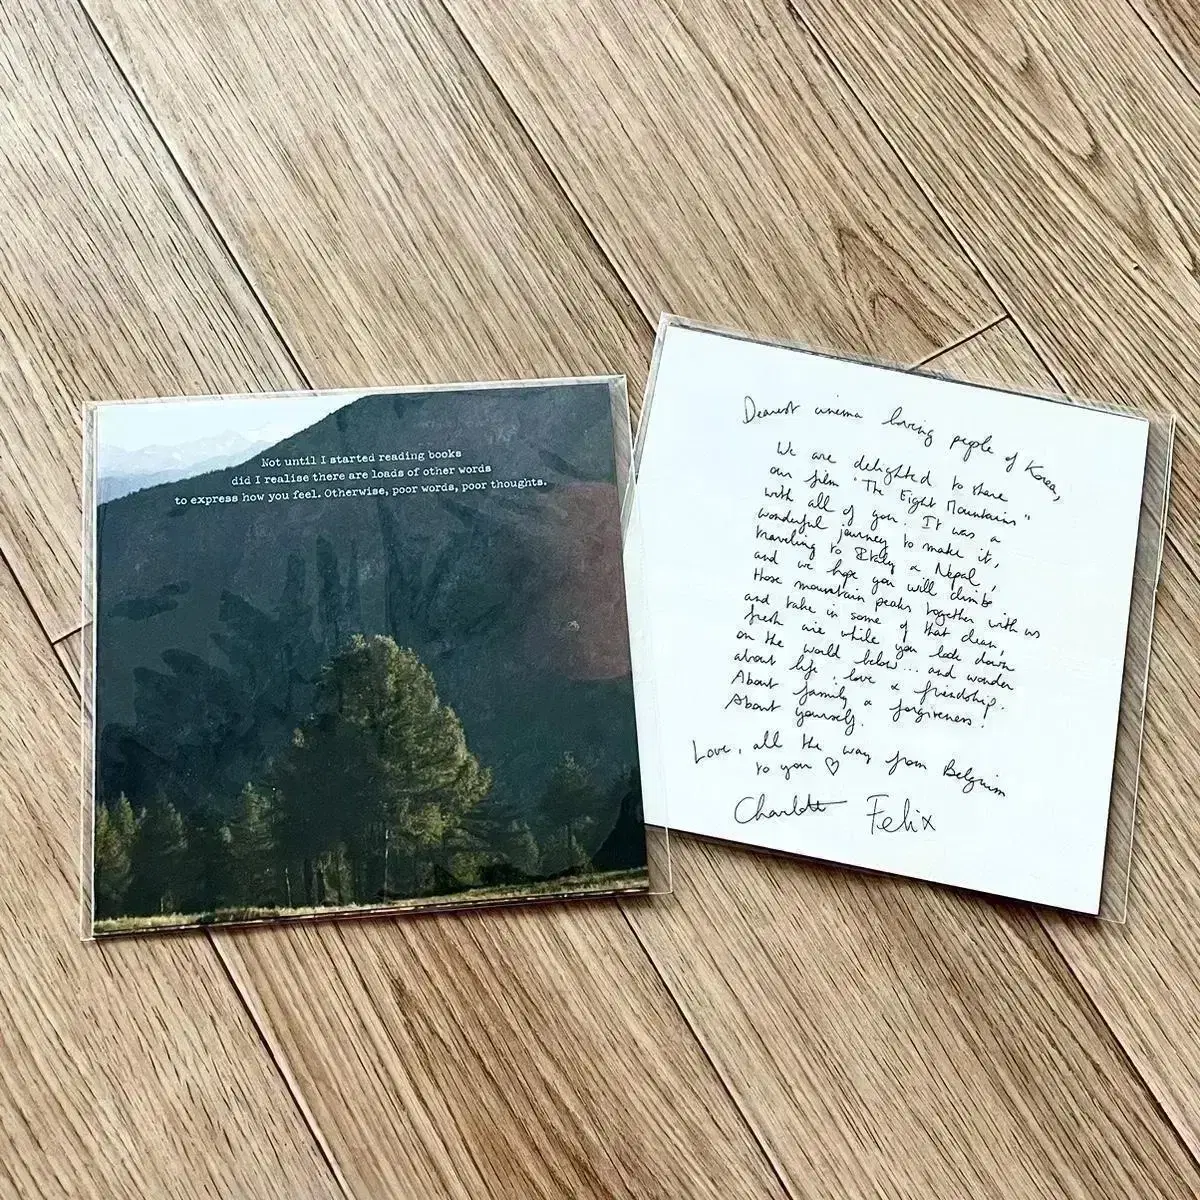 Not until I started reading books
did I realise there are loads of other words
to express how you feel. Otherwise, poor words, poor thoughts.
Dearest cinema loving people of Korea,
We are delighted to share
our film "The Eight Mountains"
with all of you. It was a
wonderful journey to make it,
traveling to Italy & Nepal,
and we hope you will climb
those mountain peaks together with us
and take in some of that clean,
fresh air while you look down
on the world below... and wonder
about life, love & friendship.
About family & forgiveness.
About yourself.
Love, all the way from Belgium
to you ♡
Charlotte Felix